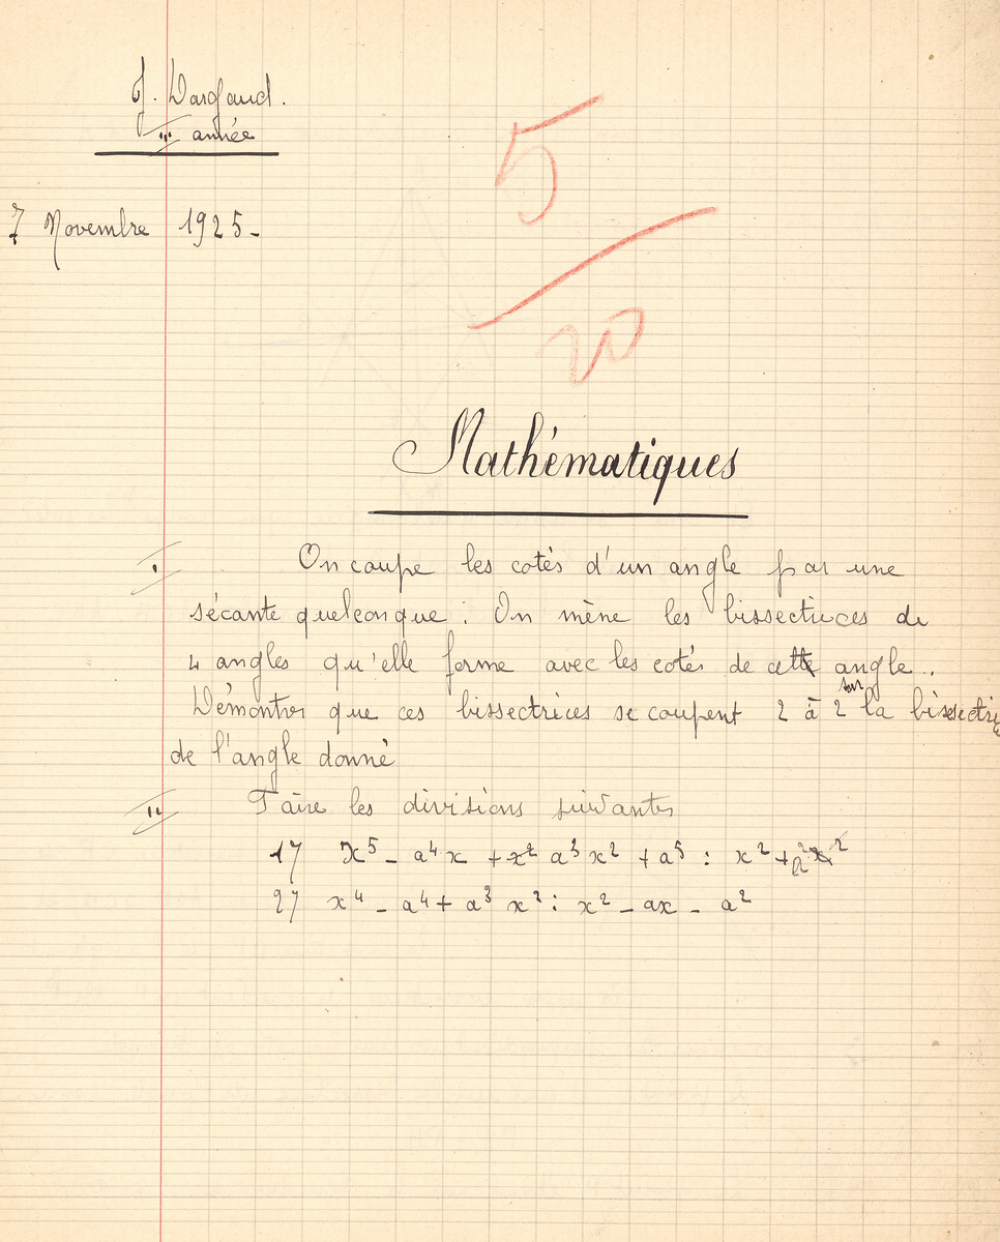 J. Dargaud.
III année
7 Novembre 1925-
5
20
Mathématiques
I On coupe les cotés d'un angle par une
sécante quelconque. On mène les bissectrices de
4 angles qu'elle forme avec les cotés de cette angle.
Démontrer que ces bissectrices se coupent 2 à 2 sur la bissectrice
de l'angle donné
II Faire les divisions suivantes
1/ x⁵ - a⁴x + a³x² + a⁵ : x² + a²
2/ x⁴ - a⁴ + a³ x² : x² - ax - a²